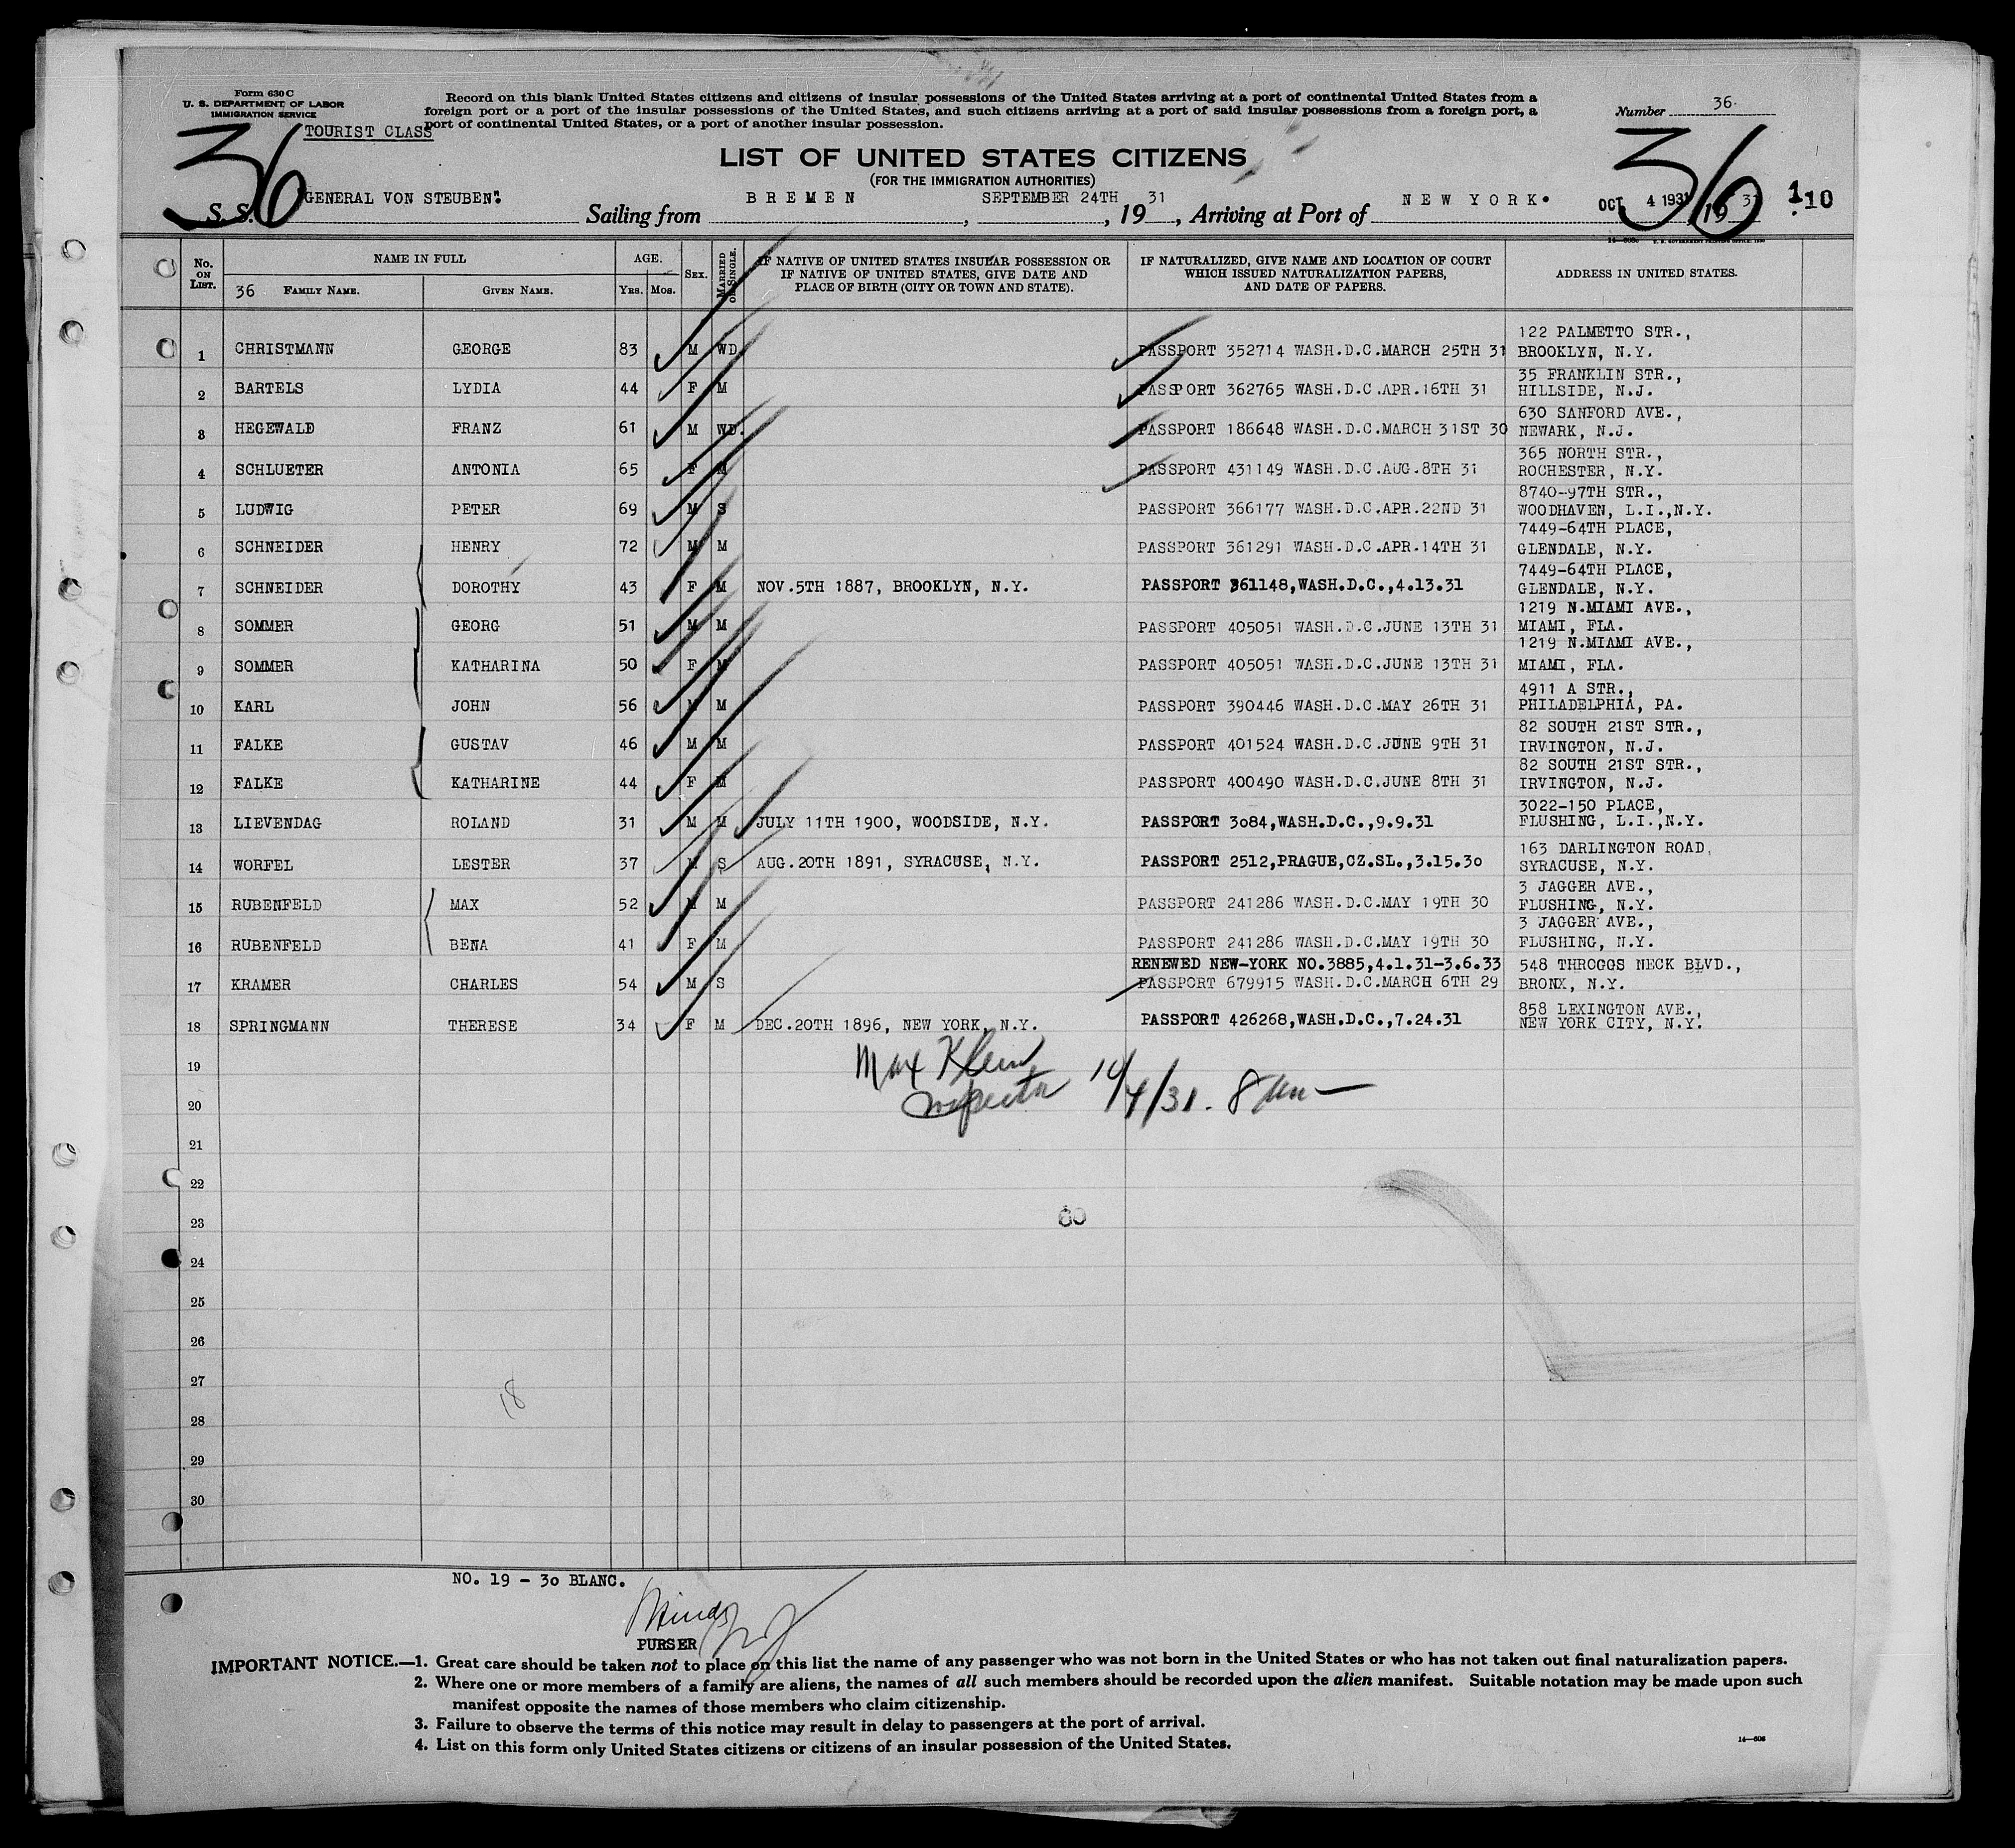 Form 630 C
U. S. DEPARTMENT OF LABOR
IMMIGRATION SERVICE
TOURIST CLASS
Record on this blank United States citizens and citizens of insular possessions of the United States arriving at a port of continental United States from a
foreign port or a port of the insular possessions of the United States, and such citizens arriving at a port of said insular possessions from a foreign port, a
port of continental United States, or a port of another insular possession.
Number 36.
36
LIST OF UNITED STATES CITIZENS
(FOR THE IMMIGRATION AUTHORITIES)
36
S. S. "GENERAL VON STEUBEN". Sailing from BREMEN, SEPTEMBER 24TH, 1931, Arriving at Port of NEW YORK. OCT 4 1931, 1931 110
No. ON LIST. NAME IN FULL AGE. SEX. MARRIED OR SINGLE. IF NATIVE OF UNITED STATES INSULAR POSSESSION OR IF NATIVE OF UNITED STATES, GIVE DATE AND PLACE OF BIRTH (CITY OR TOWN AND STATE). IF NATURALIZED, GIVE NAME AND LOCATION OF COURT WHICH ISSUED NATURALIZATION PAPERS, AND DATE OF PAPERS. ADDRESS IN UNITED STATES.
36 FAMILY NAME. GIVEN NAME. YRS. MOS.
1 CHRISTMANN GEORGE 83 M WD. PASSPORT 352714 WASH.D.C.MARCH 25TH 31 122 PALMETTO STR., BROOKLYN, N.Y.
2 BARTELS LYDIA 44 F M PASSPORT 362765 WASH.D.C.APR.16TH 31 35 FRANKLIN STR., HILLSIDE, N.J.
3 HEGEWALD FRANZ 61 M WD. PASSPORT 186648 WASH.D.C.MARCH 31ST 30 630 SANFORD AVE., NEWARK, N.J.
4 SCHLUETER ANTONIA 65 F M PASSPORT 431149 WASH.D.C.AUG.8TH 31 365 NORTH STR., ROCHESTER, N.Y.
5 LUDWIG PETER 69 M S PASSPORT 366177 WASH.D.C.APR.22ND 31 8740-97TH STR., WOODHAVEN, L.I.,N.Y.
6 SCHNEIDER HENRY 72 M M PASSPORT 361291 WASH.D.C.APR.14TH 31 7449-64TH PLACE, GLENDALE, N.Y.
7 SCHNEIDER DOROTHY 43 F M NOV.5TH 1887, BROOKLYN, N.Y. PASSPORT 361148,WASH.D.C.,4.13.31 7449-64TH PLACE, GLENDALE, N.Y.
8 SOMMER GEORG 51 M M PASSPORT 405051 WASH.D.C.JUNE 13TH 31 1219 N.MIAMI AVE., MIAMI, FLA.
9 SOMMER KATHARINA 50 F M PASSPORT 405051 WASH.D.C.JUNE 13TH 31 1219 N.MIAMI AVE., MIAMI, FLA.
10 KARL JOHN 56 M M PASSPORT 390446 WASH.D.C.MAY 26TH 31 4911 A STR., PHILADELPHIA, PA.
11 FALKE GUSTAV 46 M M PASSPORT 401524 WASH.D.C.JUNE 9TH 31 82 SOUTH 21ST STR., IRVINGTON, N.J.
12 FALKE KATHARINE 44 F M PASSPORT 400490 WASH.D.C.JUNE 8TH 31 82 SOUTH 21ST STR., IRVINGTON, N.J.
13 LIEVENDAG ROLAND 31 M M JULY 11TH 1900, WOODSIDE, N.Y. PASSPORT 3o84,WASH.D.C.,9.9.31 3022-150 PLACE, FLUSHING, L.I.,N.Y.
14 WORFEL LESTER 37 M S AUG.20TH 1891, SYRACUSE, N.Y. PASSPORT 2512,PRAGUE,CZ.SL.,3.15.3o 163 DARLINGTON ROAD, SYRACUSE, N.Y.
15 RUBENFELD MAX 52 M M PASSPORT 241286 WASH.D.C.MAY 19TH 30 3 JAGGER AVE., FLUSHING, N.Y.
16 RUBENFELD BENA 41 F M PASSPORT 241286 WASH.D.C.MAY 19TH 30 3 JAGGER AVE., FLUSHING, N.Y.
17 KRAMER CHARLES 54 M S RENEWED NEW-YORK NO.3885,4.1.31-3.6.33 PASSPORT 679915 WASH.D.C.MARCH 6TH 29 548 THROGGS NECK BLVD., BRONX, N.Y.
18 SPRINGMANN THERESE 34 F M DEC.20TH 1896, NEW YORK, N.Y. PASSPORT 426268,WASH.D.C.,7.24.31 858 LEXINGTON AVE., NEW YORK CITY, N.Y.
19 Max Klein
20 Inspector 10/4/31. 8
21
22
23 60
24
25
26
27
28 18
29
30
NO. 19 - 3o BLANC.
PURSER
IMPORTANT NOTICE.—1. Great care should be taken not to place on this list the name of any passenger who was not born in the United States or who has not taken out final naturalization papers.
2. Where one or more members of a family are aliens, the names of all such members should be recorded upon the alien manifest. Suitable notation may be made upon such
manifest opposite the names of those members who claim citizenship.
3. Failure to observe the terms of this notice may result in delay to passengers at the port of arrival.
4. List on this form only United States citizens or citizens of an insular possession of the United States.